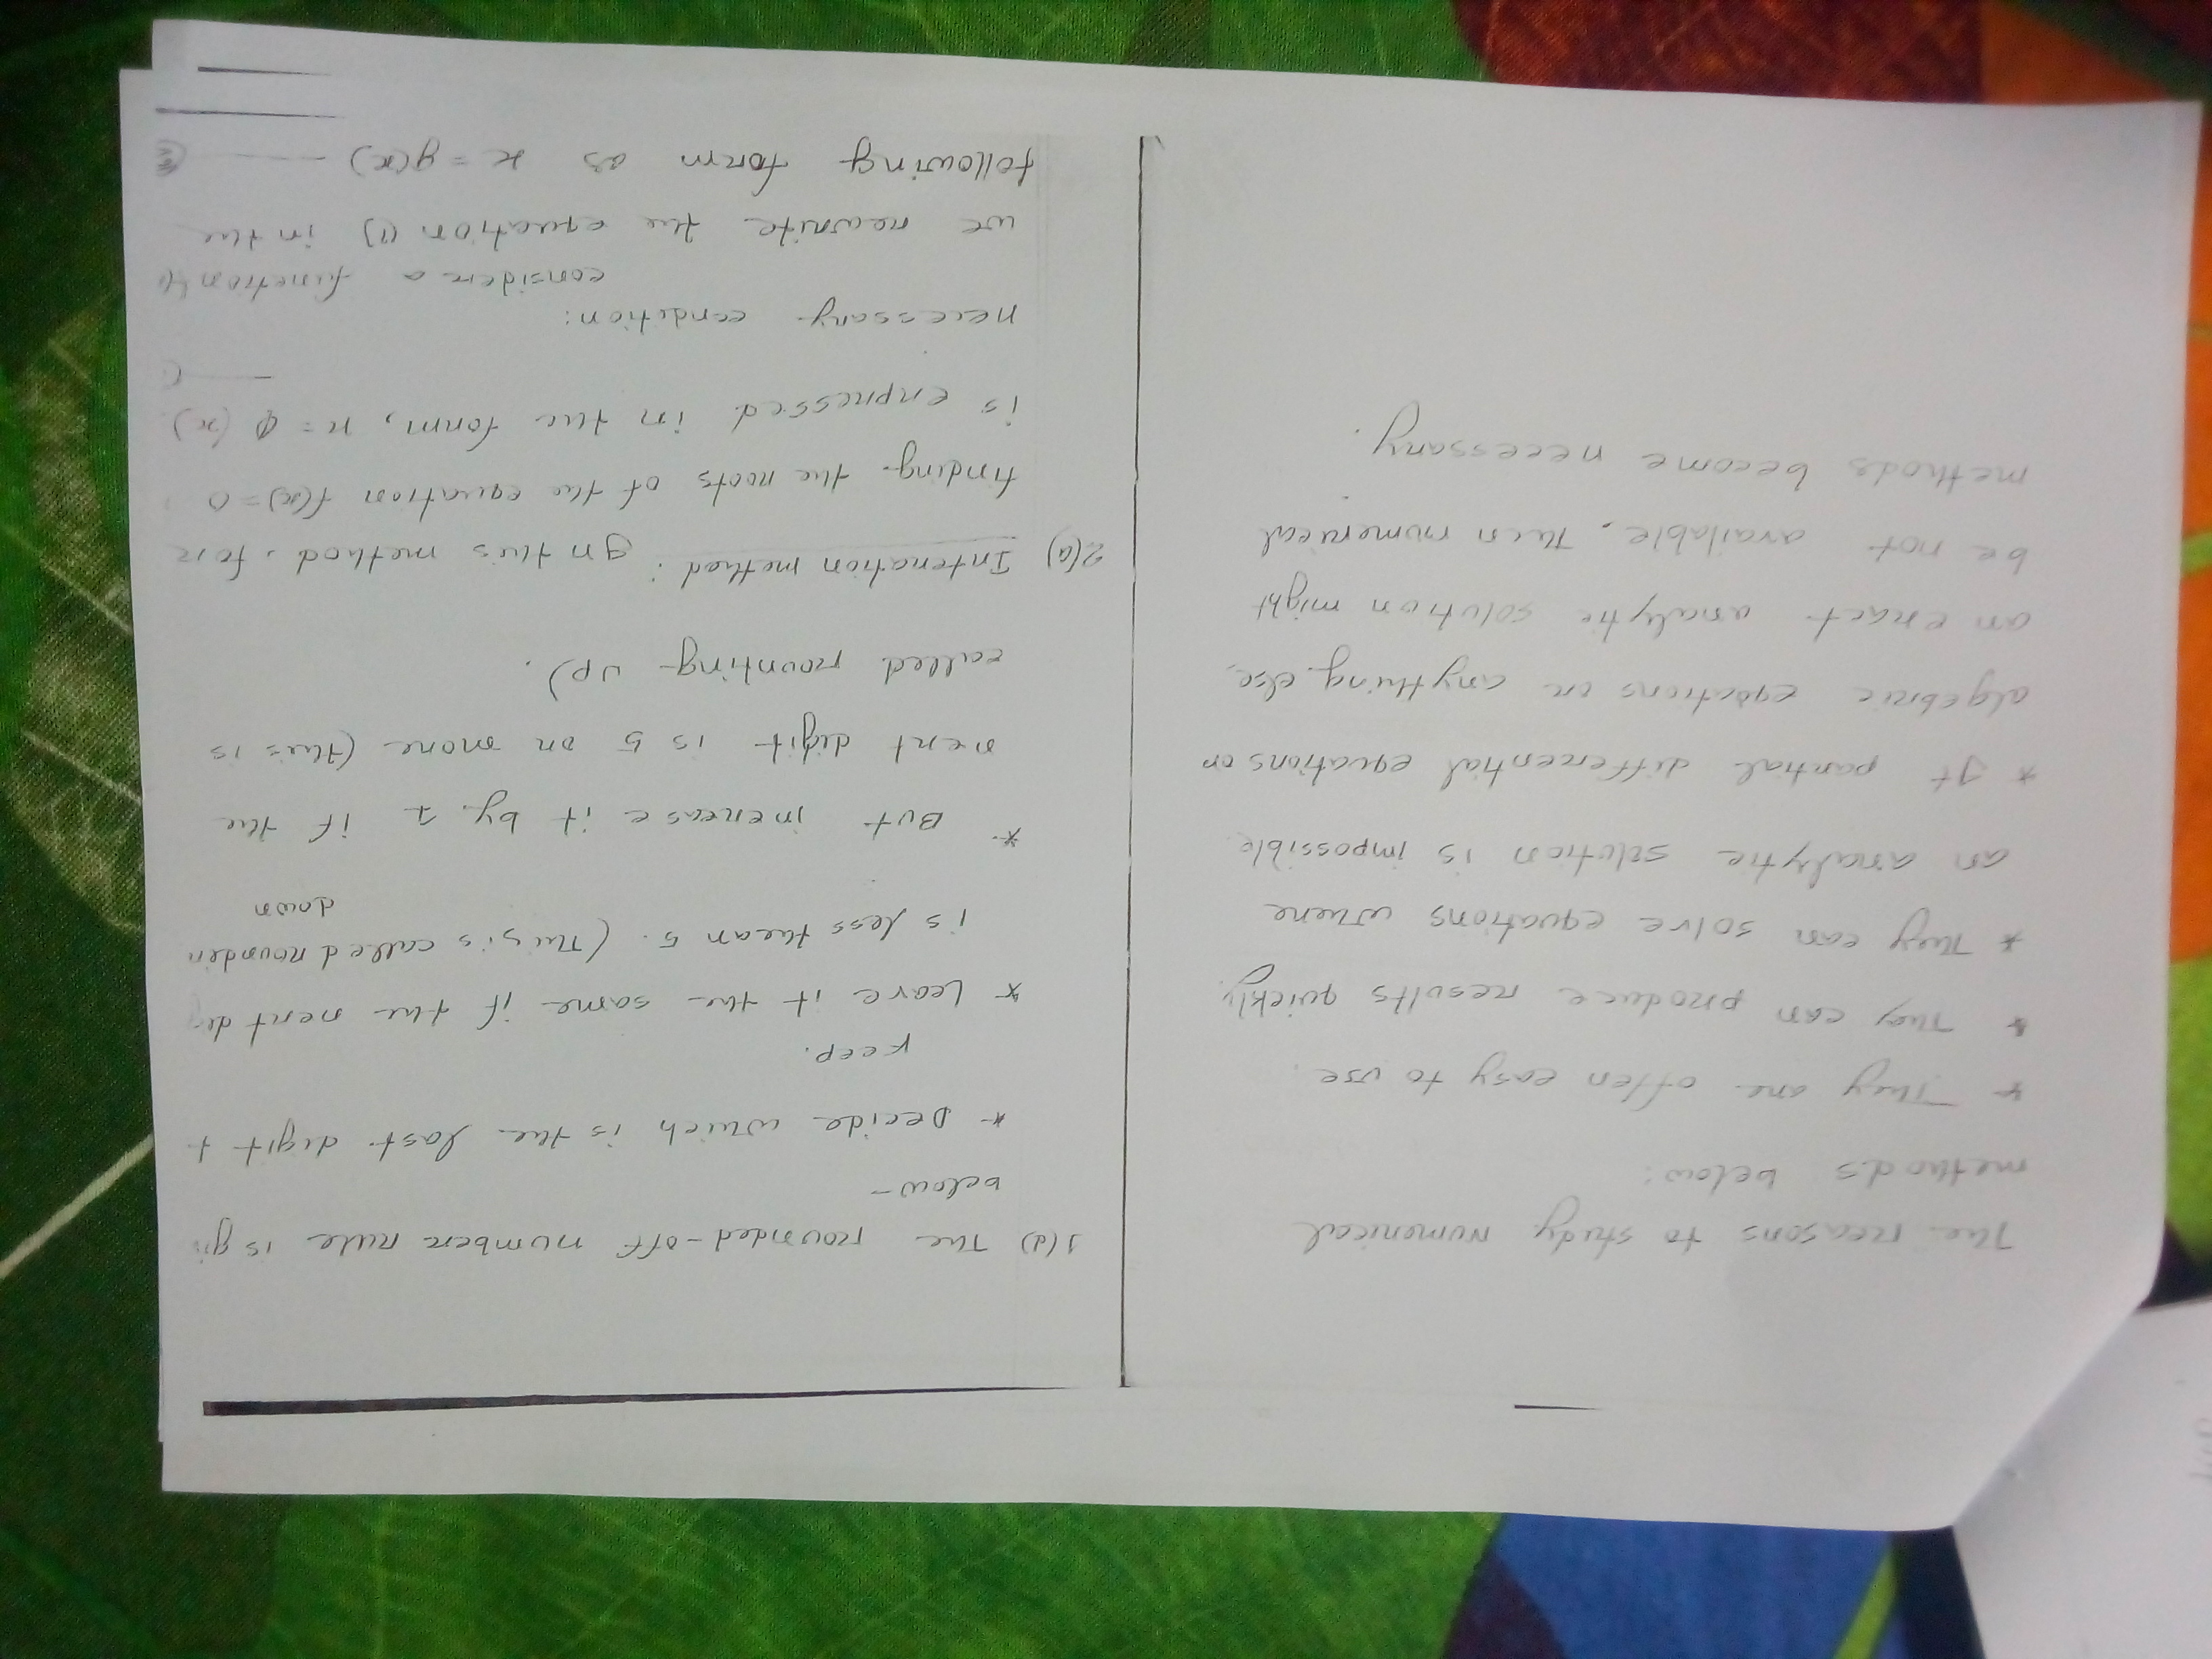 The reasons to study Numerical
methods below:
* They are often easy to use.
* They can produce results quickly.
* They can solve equations where
an analytic solution is impossible.
* It partial differential equations or
algebraic equations or anything else,
an exact analytic solution might
be not available. Then numerical
methods become necessary.
1(d) The rounded-off number rule is
below-
* Decide which is the last digit
keep.
* Leave it the same if the next
is less thean 5. (This is called
down
* But increase it by 1 if the
next digit is 5 or more (this is
called rounting up).
2(a) Interation method: In this method, for
finding the roots of the equation f(x)=0
is expressed in the form, x = φ (x)
necessary condition:
consider a function
we rewrite the equation (1) in the
following form as x = g(x)